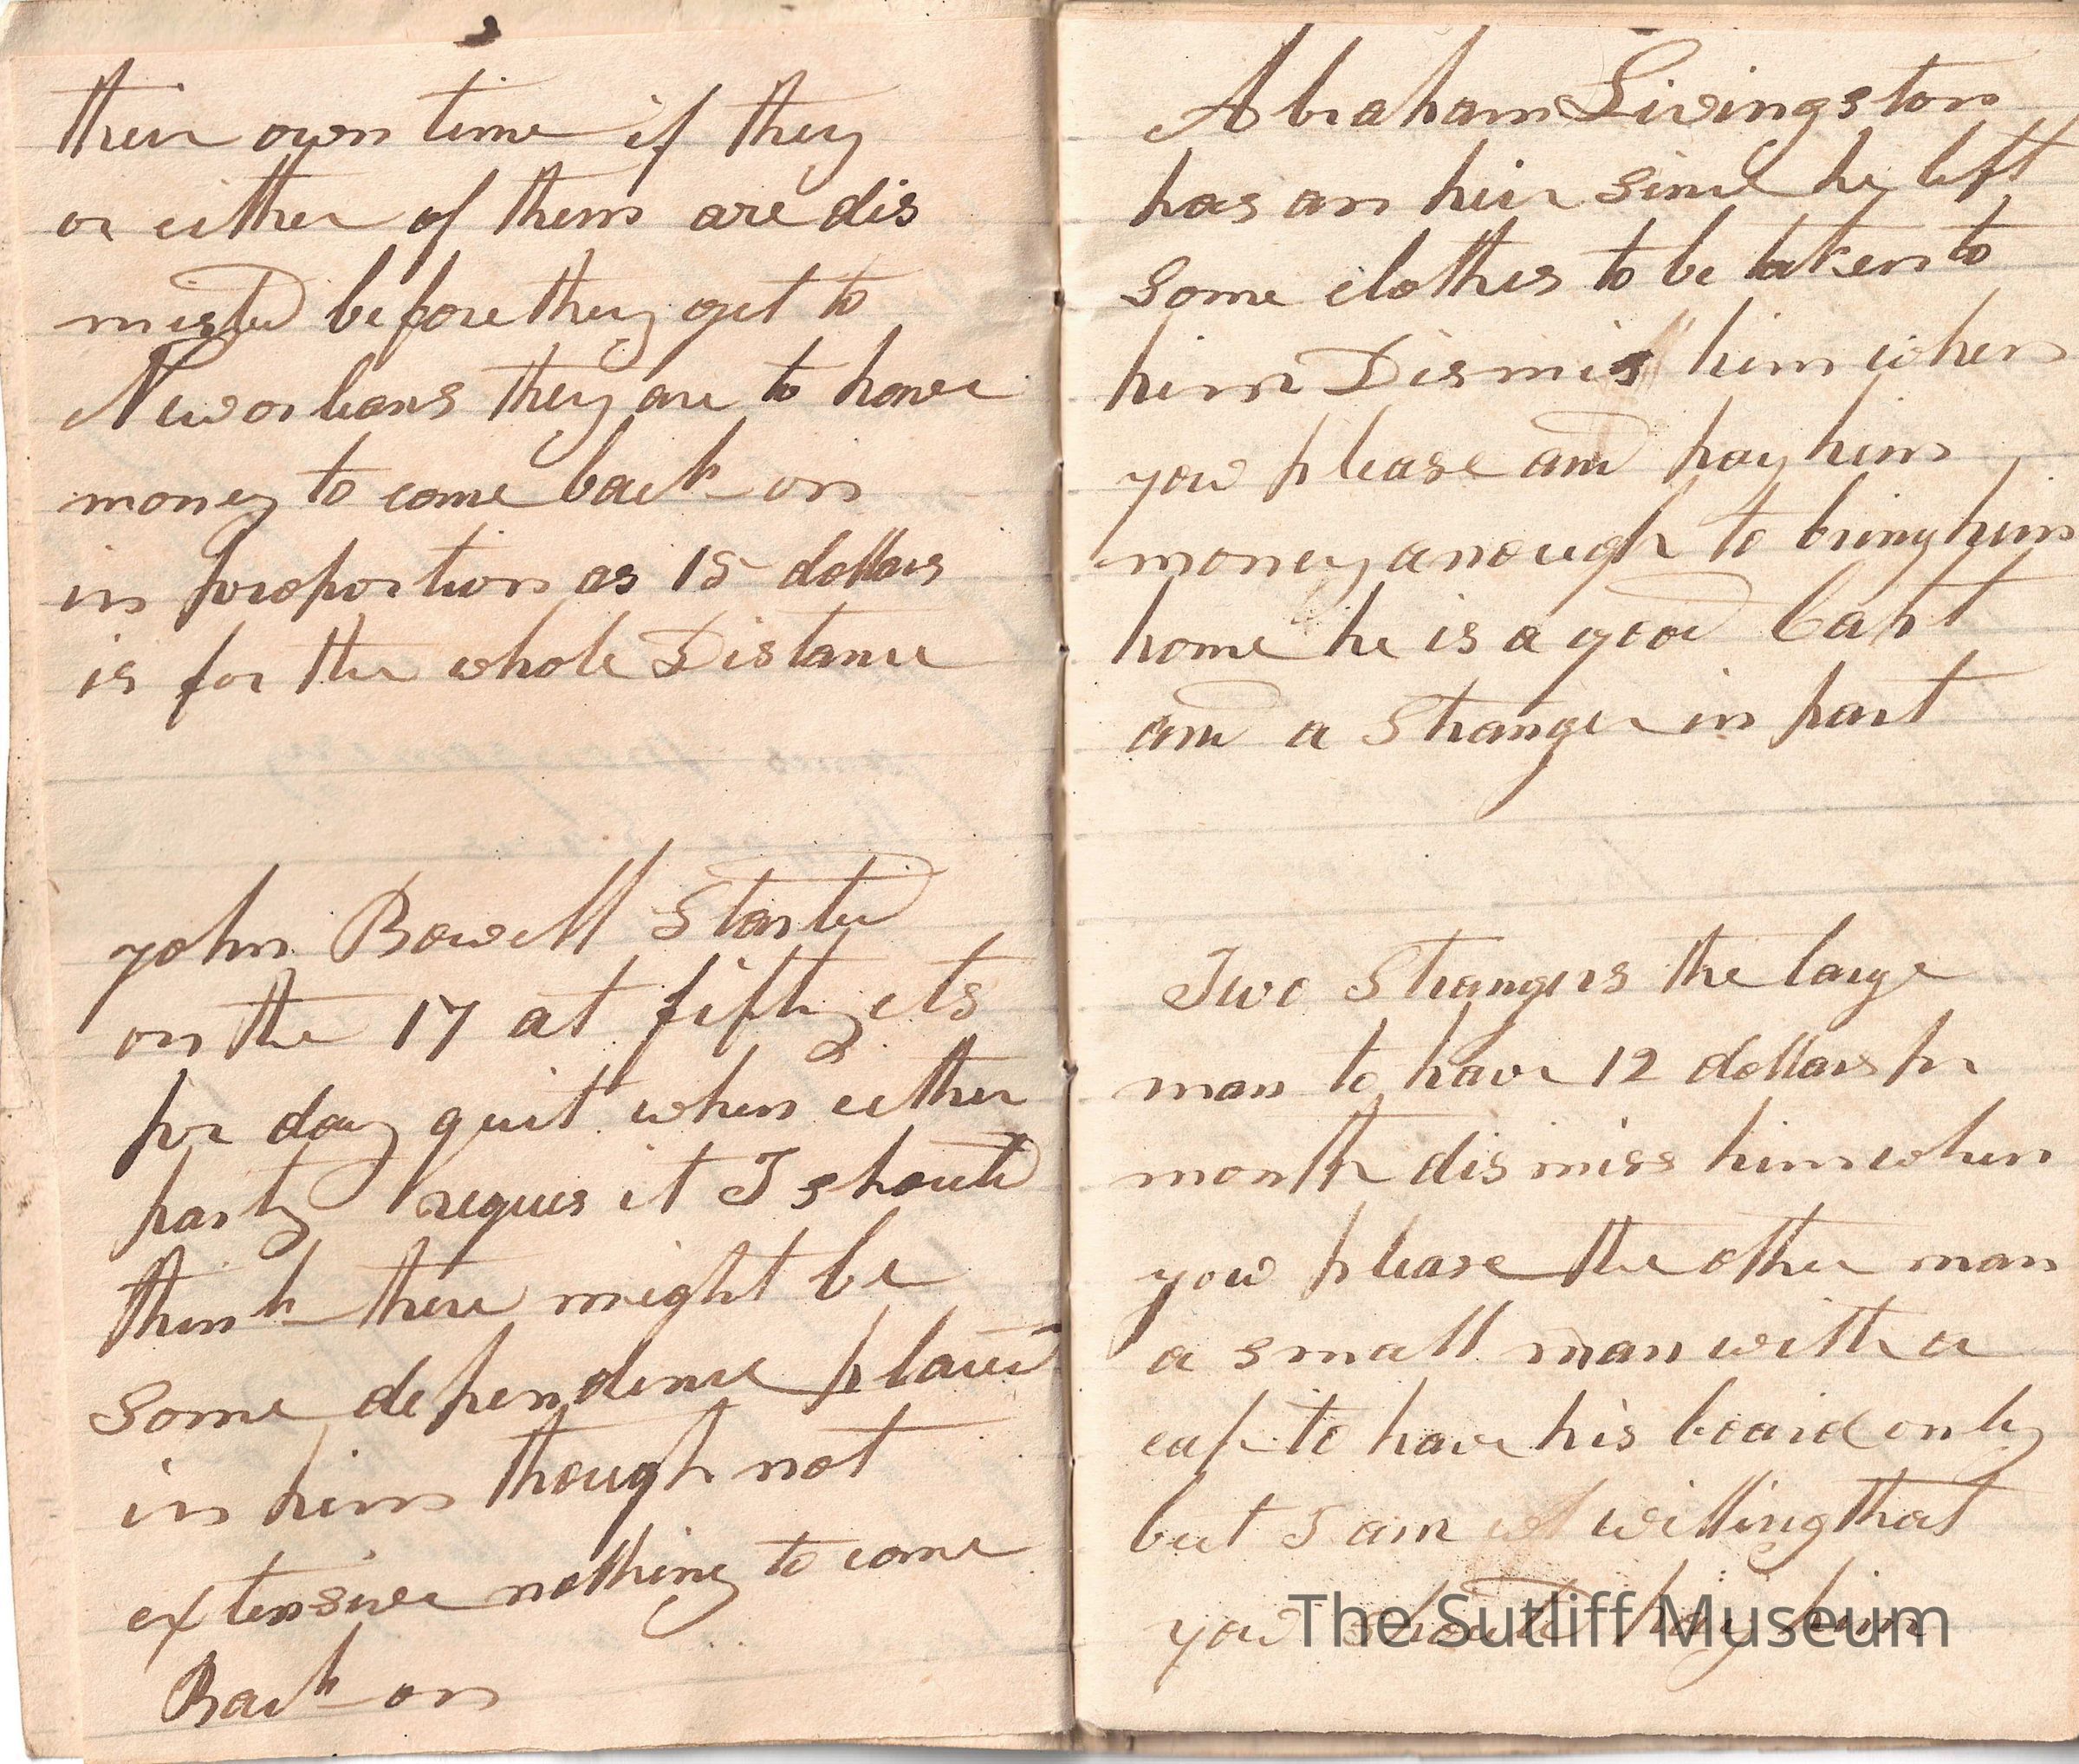 their own time if they
or either of them are dis
misted before they get to
Neworleans they are to have
money to come back on
in proportion as 15 dollars
is for the whole Distance
John Bowell Started
on the 17 at fifty cts
per day quit when either
party reques it I should
think there might be
some dependence placed
in him though not
extensive nothing to come
Back on
Abraham Livingston
has an heir since he left
some clothes to be taken to
him Dismis him when
you please and pay him
money anough to bring him
home he is a good Capt
and a Stranger in part
Two Strangers the large
man to have 12 dollars pr
month dismiss him when
you please the other man
a small man with a
cap to have his board only
but I am willing that
you should pay him
The Sutliff Museum